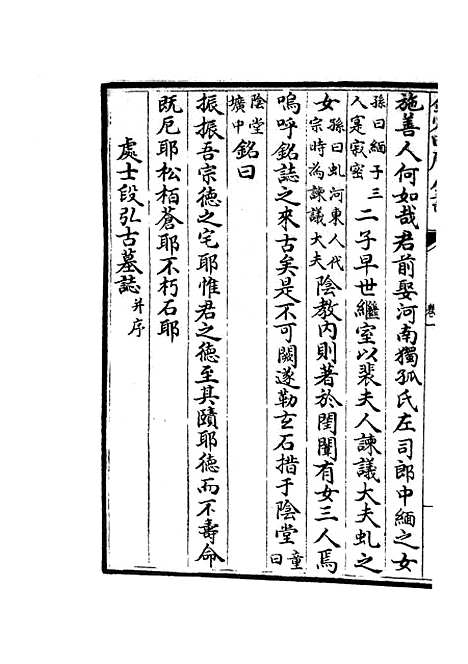 施善人何如哉君前娶河南獨孤氏左司郎中緬之女
孫曰緬子三人寔寂密二子早世繼室以裴夫人諫議大夫虬之
女孫曰虬河東人代宗時為諫議大夫陰教內則著於閨閫有女三人焉
嗚呼銘誌之來古矣是不可闕遂勒玄石措于陰堂童曰
陰堂壙中銘曰
振振吾宗德之宅耶惟君之德至其賾耶德而不壽命
既戹耶松栢蒼耶不朽石耶
處士段弘古墓誌并序